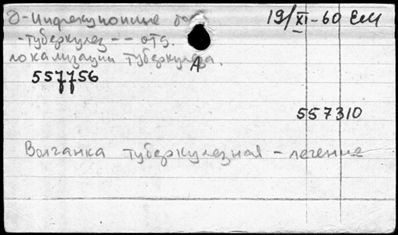 8-Инфекционные бо 19/XI-60 ЕМ
-туберкулез -- отд.
локализации туберкулеза.
А
557756
557310
Волчанка туберкулезная - лечение